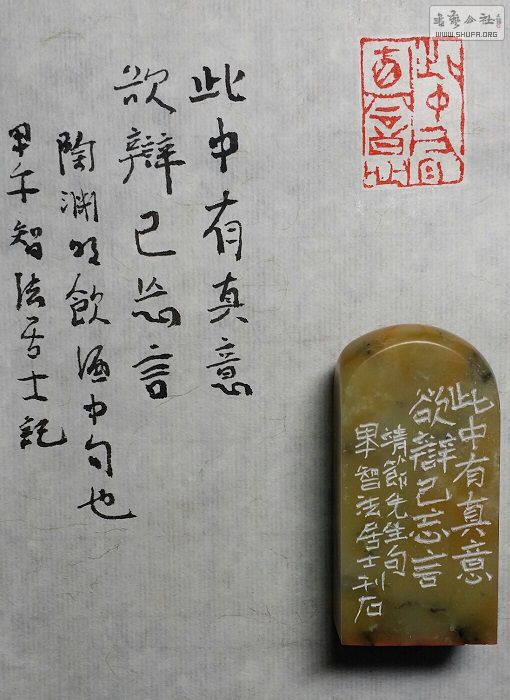 書藝公社
WWW.SHUFA.ORG
此中有真意
欲辯已忘言
陶渊明飲酒中句也
甲午智法居士記
此中有真意
欲辯已忘言
靖節先生句
智法居士石